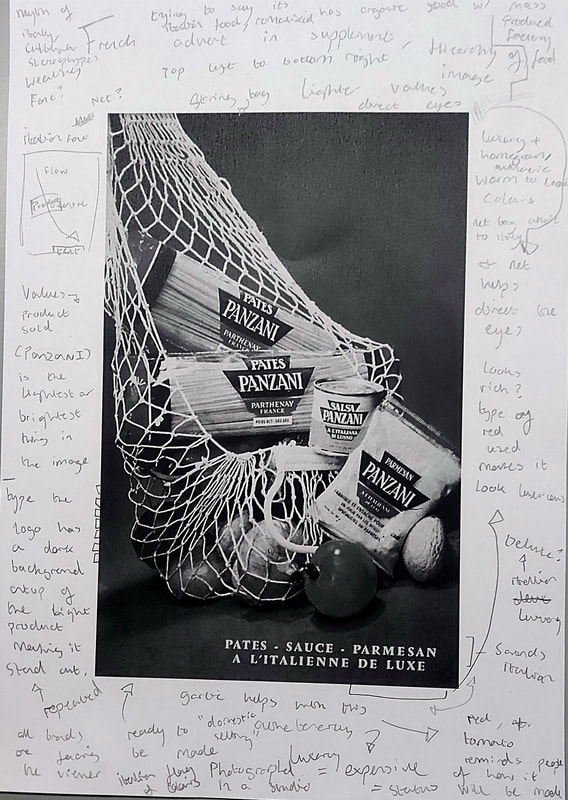 myth of
italy
cultural
stereotypes
weathy
Font?
trying to say its
italian food, romanised has organic good w/ mass
Produced
factory
French advert in supplement, Hierarchy of food
Top left to bottom right
image
Net?
String bag
Lighter values
direct eyes
italian font
Flow
Values →
product
sold
(PANZANI)
is the
lightest or
brightest
thing in
the image
Type the
logo has
a dark
background
ontop of
the bright
product
making it
stand out.
luxury +
homegrown,
authentic
warm to look
colours
net bag
to
& net
helps
direct the
eyes
looks
rich?
type of
red
used
makes it
look luxurious
Deluxe?
italian
luxury
Sounds
italian
PATES
PANZANI
PARTHENAY
FRANCE
PATES
PANZANI
PARTHENAY
FRANCE
SALSA
PANZANI
A L'ITALIANA
DI LUSSO
PARMESAN
PANZANI
PATES - SAUCE - PARMESAN
A L'ITALIENNE DE LUXE
repeated
all brands
are facing
the viewer
ready to
be made
garlic helps with this
"domestic
setting"
italian flag
colours
Photographed
in a studio
luxury
= expensive
= status
red,
tomato
reminds people
of how it
will be made